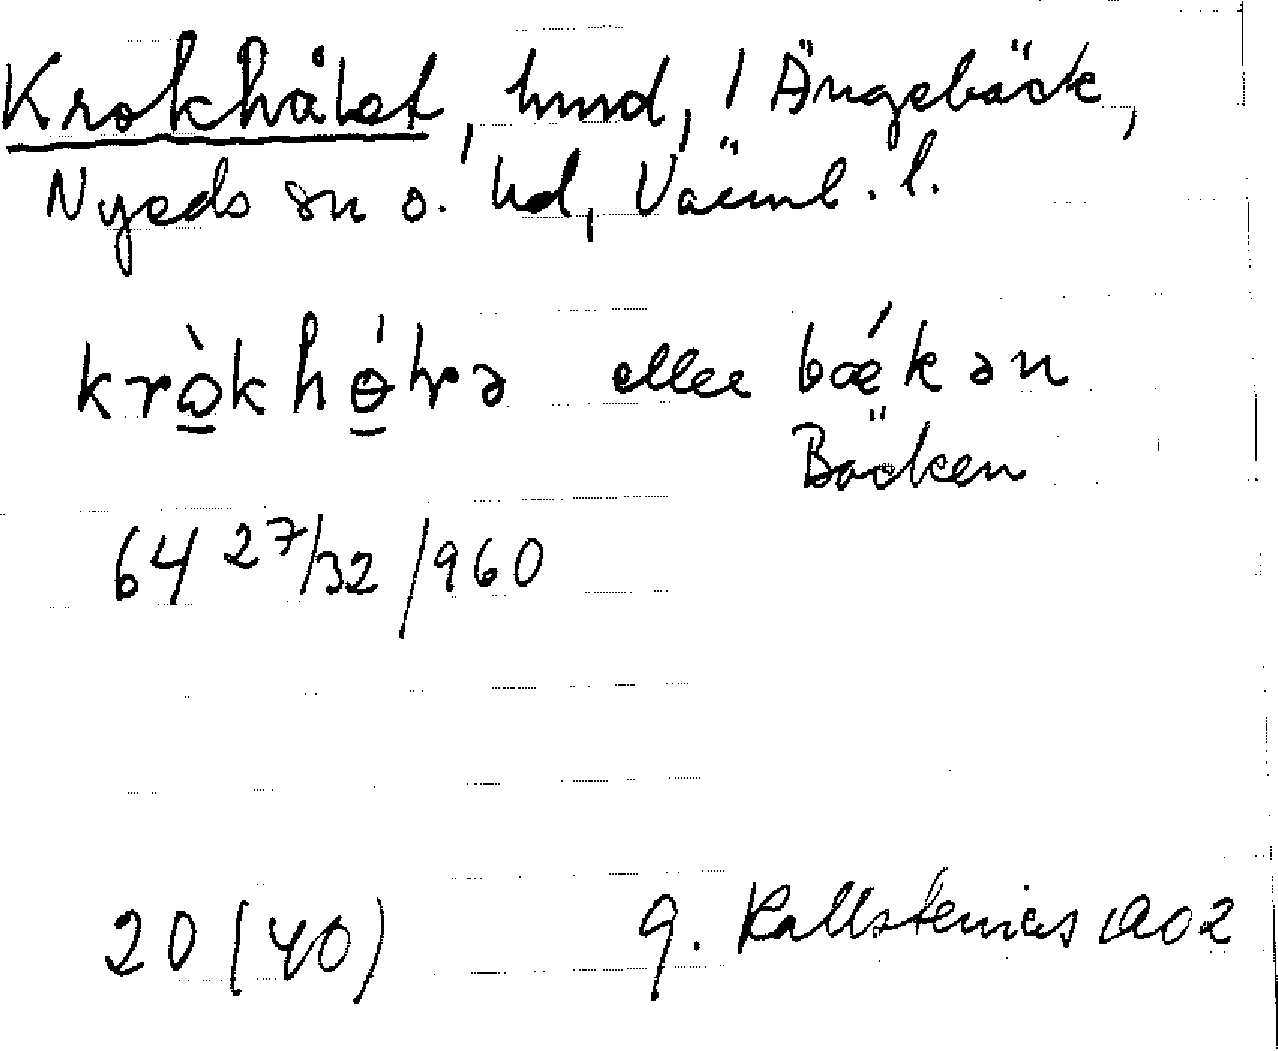 Krokhålet, hmd, i Ängebäck,
Nyeds sn o. hd, Värml. l.
kròkhó̱lrə eller bǽkən
Bäcken
64 27/32 /960
20 (40) G. Kallstenius 1902